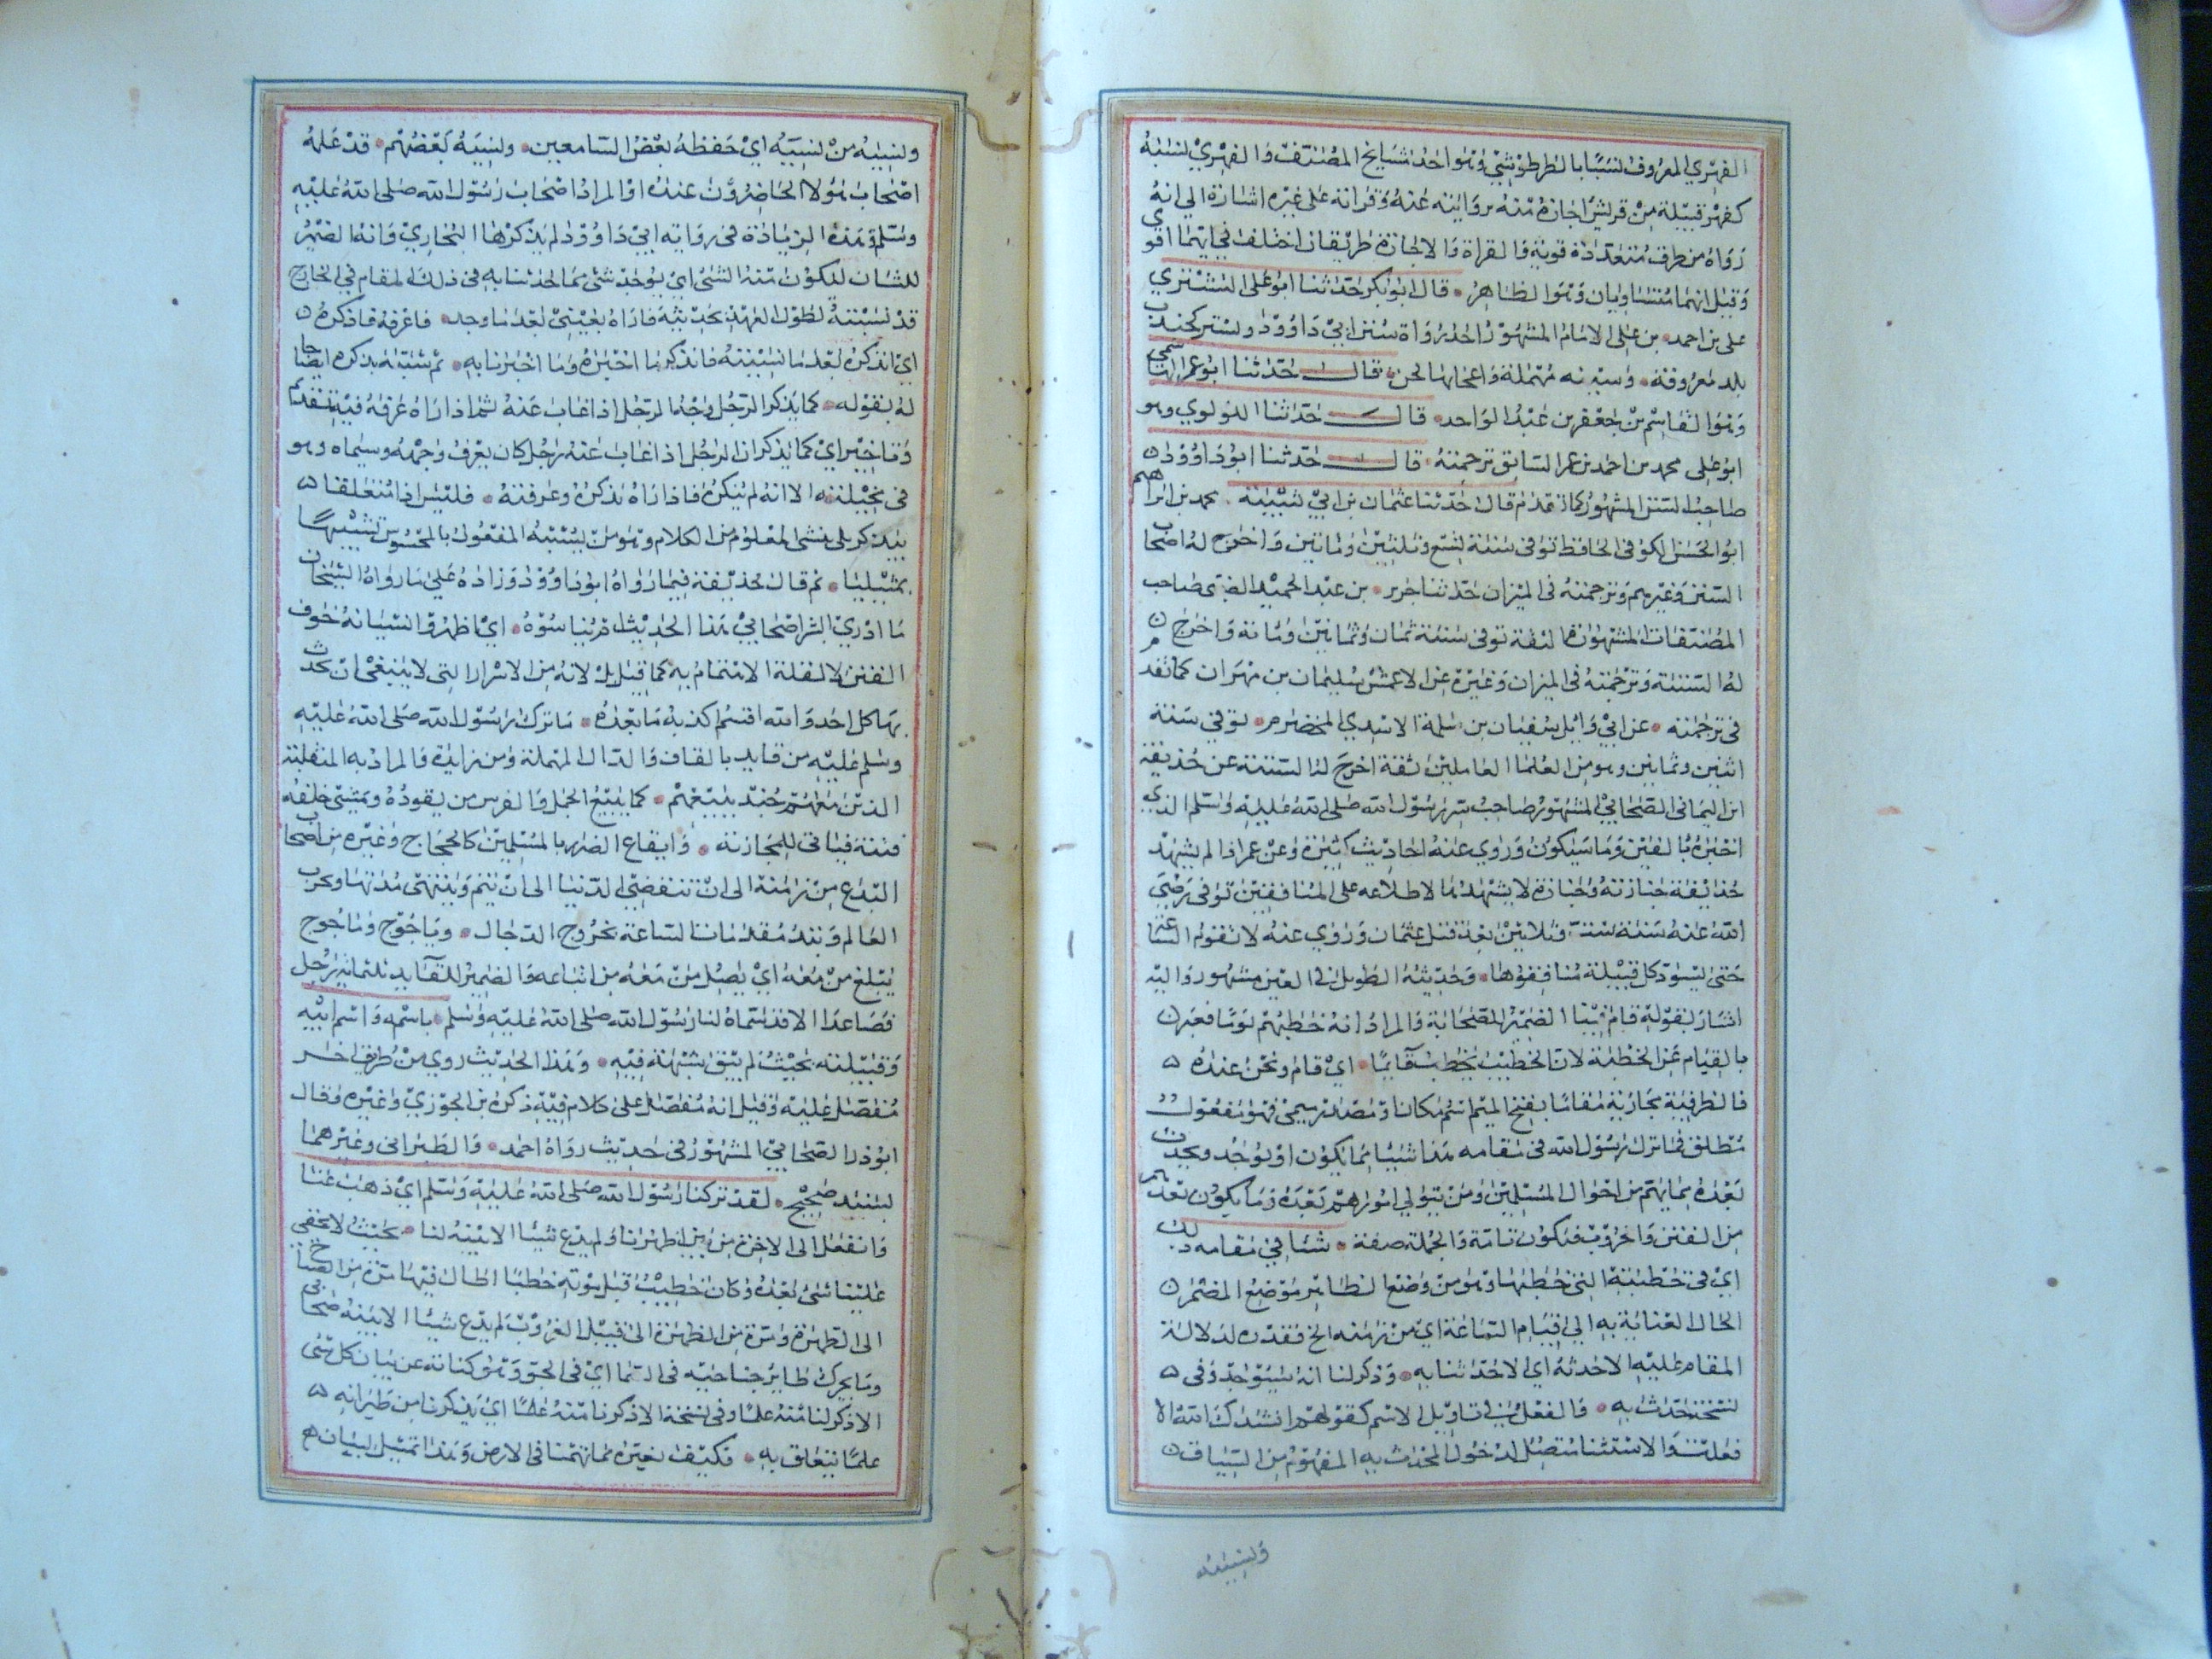 الفهري المعروف نسبا بالطرطوشي وهو احد مشايخ المصنف والفهري نسبة
كفهر قبيلة من قريش اجازة منه بروايته عنه وقرانه على غيره اشارة الى انه
رواه من طرف متعددة قوية والقراة والاجازة طريقان اختلف في ايهما اقوى
وقيل انهما متساويان وهو الظاهر قال ابو بكر حدثنا ابو على التستري
على بن احمد بن على الامام المشهور احد رواة سنن ابي داوود وتستر كجندب
بلد معروفة وسينه مهملة واعجامها لحن قال حدثنا ابو عمر الهاشمي
وهو القاسم بن جعفر بن عبد الواحد قال حدثنا اللولوي وهو
ابو على محمد بن احمد بن عمر السابق ترجمته قال حدثنا ابو داوود
صاحب السنن المشهور كما تقدم قال حدثنا عثمان بن ابي شيبة محمد بن ابراهيم
ابو الحسن الكوفي الحافظ توفى سنة تسع وثلثين ومائتين واخرج له اصحاب
السنن وغيرهم وترجمته في الميزان حدثنا جرير بن عبد الحميد الضبي صاحب
المصنفات المشهورة الثقة توفى سنة ثمان وثمانين ومائة واخرج
له الستة وترجمته في الميزان وغيره عن الاعمش سليمان بن مهران كما تقدم
في ترجمته عن ابي وايل سفيان بن سلمة الاسدي المخضرم توفي سنة
اثنين وثمانين وهو من العلما العاملين ثقة اخرج له الستة عن حذيفة
ابن اليماني الصحابي المشهور صاحب سر رسول الله صلى الله عليه وسلم الذي
اخبره بالفتن وما سيكون وروي عنه احاديث كثيرة وعن عمر اذا لم يشهد
حذيفة جنازته وجنازة لا يشهدها لاطلاعه على المنافقين توفى رضي
الله عنه سنة ستة وثلاثين بعد قتل عثمان وروي عنه لا تقوم الساعة
حتى ليسود كل قبيلة منافقوها وحديثه الطويل في الفتن مشهور واليه
اشار بقوله قام فينا الضمير للصحابة والمراد انه خطبهم يوما فعبر
بالقيام عن الخطبة لان الخطيب يخطب قائما اي قام ونحن عنده
فالظرفية مجازية مقاما بفتح الميم اسم مكان او مصدر ميمي فهو مفعول
مطلق فما ترك رسول الله في مقامه هذا شيئا مما يكون او يوجد ويحدث
بعده مما يهتم من احوال المسلمين ومن يتولى امورهم بعده وما يكون بعدهم
من الفتن والحروب فيكون تامة والجملة صفة شئا في مقامه ذلك
اي في خطبته التي خطبها وهو من وضع الظاهر موضع المضمر
الحال العناية به الى قيام الساعة اي من زمنه الخ فقدره لدلالة
المقام عليه الا حدثه اي الا حدثنا به وذكر لنا انه سيوجد وفي
نسخة حدث به والفعل في تاويل الاسم كقولهم انشدك الله الا
فعلت والاستثنا متصل لدخول المحدث به المفهوم من السياق
ونسيه
ونسيه من نسيه اي حفظه بعض السامعين ونسيه بعضهم قد علمه
اصحاب هولا الحاضرون عنده او المراد اصحاب رسول الله صلى الله عليه
وسلم وهذه الزيادة في رواية ابي داوود لم يذكرها البخاري وانه الضمير
للشان ليكون منه الشئ اي يوجد شئ مما حدثنا به في ذلك المقام في الخارج
قد نسيته لطول العهد بحديثه فاراه بعيني بعد ما وجد فاعرفه فاذكره
اي اتذكره بعد ما نسيته فاتذكر ما اخبره وما اخبرنا به ثم شبه تذكره ايضاحا
له بقوله كما يذكر الرجل وجه الرجل اذا غاب عنه ثم اذا راه عرفه فيه تقديم
وتاخير اي كما يتذكر ان الرجل اذا غاب عنه رجل كان يعرف وجهه وسيماه وهو
في مخيلته الا انه لم يتذكره فاذا راه تذكره وعرفته فليس اذا متعلقا
بيذكر بل بنسى المعلوم من الكلام وهو من يشبه المعقول بالمحسوس تشبيها
تمثيليا ثم قال حذيفة فيما رواه ابو داوود وزاده على ما رواه الشيخان
ما ادري انسي اصحابي هذا الحديث ام تناسوه اي اظهروا النسيانه خوف
الفتن لا لقلة الاهتمام به كما قيل بل لانه من الاسرار التي لا ينبغي ان يحدث
بها كل احد والله اقسم اكد به ما بعده ما ترك رسول الله صلى الله عليه
وسلم عليه من قايد بالقاف والدال المهملة ومن زايدة والمراد به المتغلبة
الذين معهم جند يتبعهم كما يتبع الجمل والفرس من يقوده ويمشي خلفه
فتنة فياتي للمحاربة وايقاع الضرر بالمسلمين كالحجاج وغيره من اصحاب
البدع من زمنه الى ان تنقضي الدنيا الى ان يتم وينتهي مدتها ويخرب
العالم وتبدو مقدمات الساعة بخروج الدجال وياجوج وماجوج
يبلغ من معه اي يصل من معه من اتباعه والضمير للقايد ثلثماية رجل
فصاعدا الا قد سماه لنا رسول الله صلى الله عليه وسلم باسمه واسم ابيه
وقبيلته بحيث لم يبق شبهة فيه وهذا الحديث روي من طرق اخر
مفصل عليه وقيل انه مفصل على كلام فيه ذكره ابن الجوزي وغيره وقال
ابو ذر الصحابي المشهور في حديث رواه احمد والطبراني وغيرهما
بسند صحيح لقد تركنا رسول الله صلى الله عليه وسلم اي ذهب عنا
وانتقل الى الاخرة من بين اظهرنا ولم يدع شيئا الا بينه لنا بحيث لا يخفى
علينا شئ بعده وكان خطيب قبل موته خطبا اطال فيها مرة من الصباح
الى الظهر ومرة من الظهر الى قبيل الغروب لم يدع شيئا الا بينه
وما يحرك طاير جناحيه في السما اي في الجو وهو كناية عن بيان كل شئ
الا ذكر لنا منه علما وفي نسخة الا ذكرنا منه علما اي يذكرنا من طيرانه
علما يتعلق به فكيف بغيره مما يهمنا في الارض وهذا تمثيل لبيان